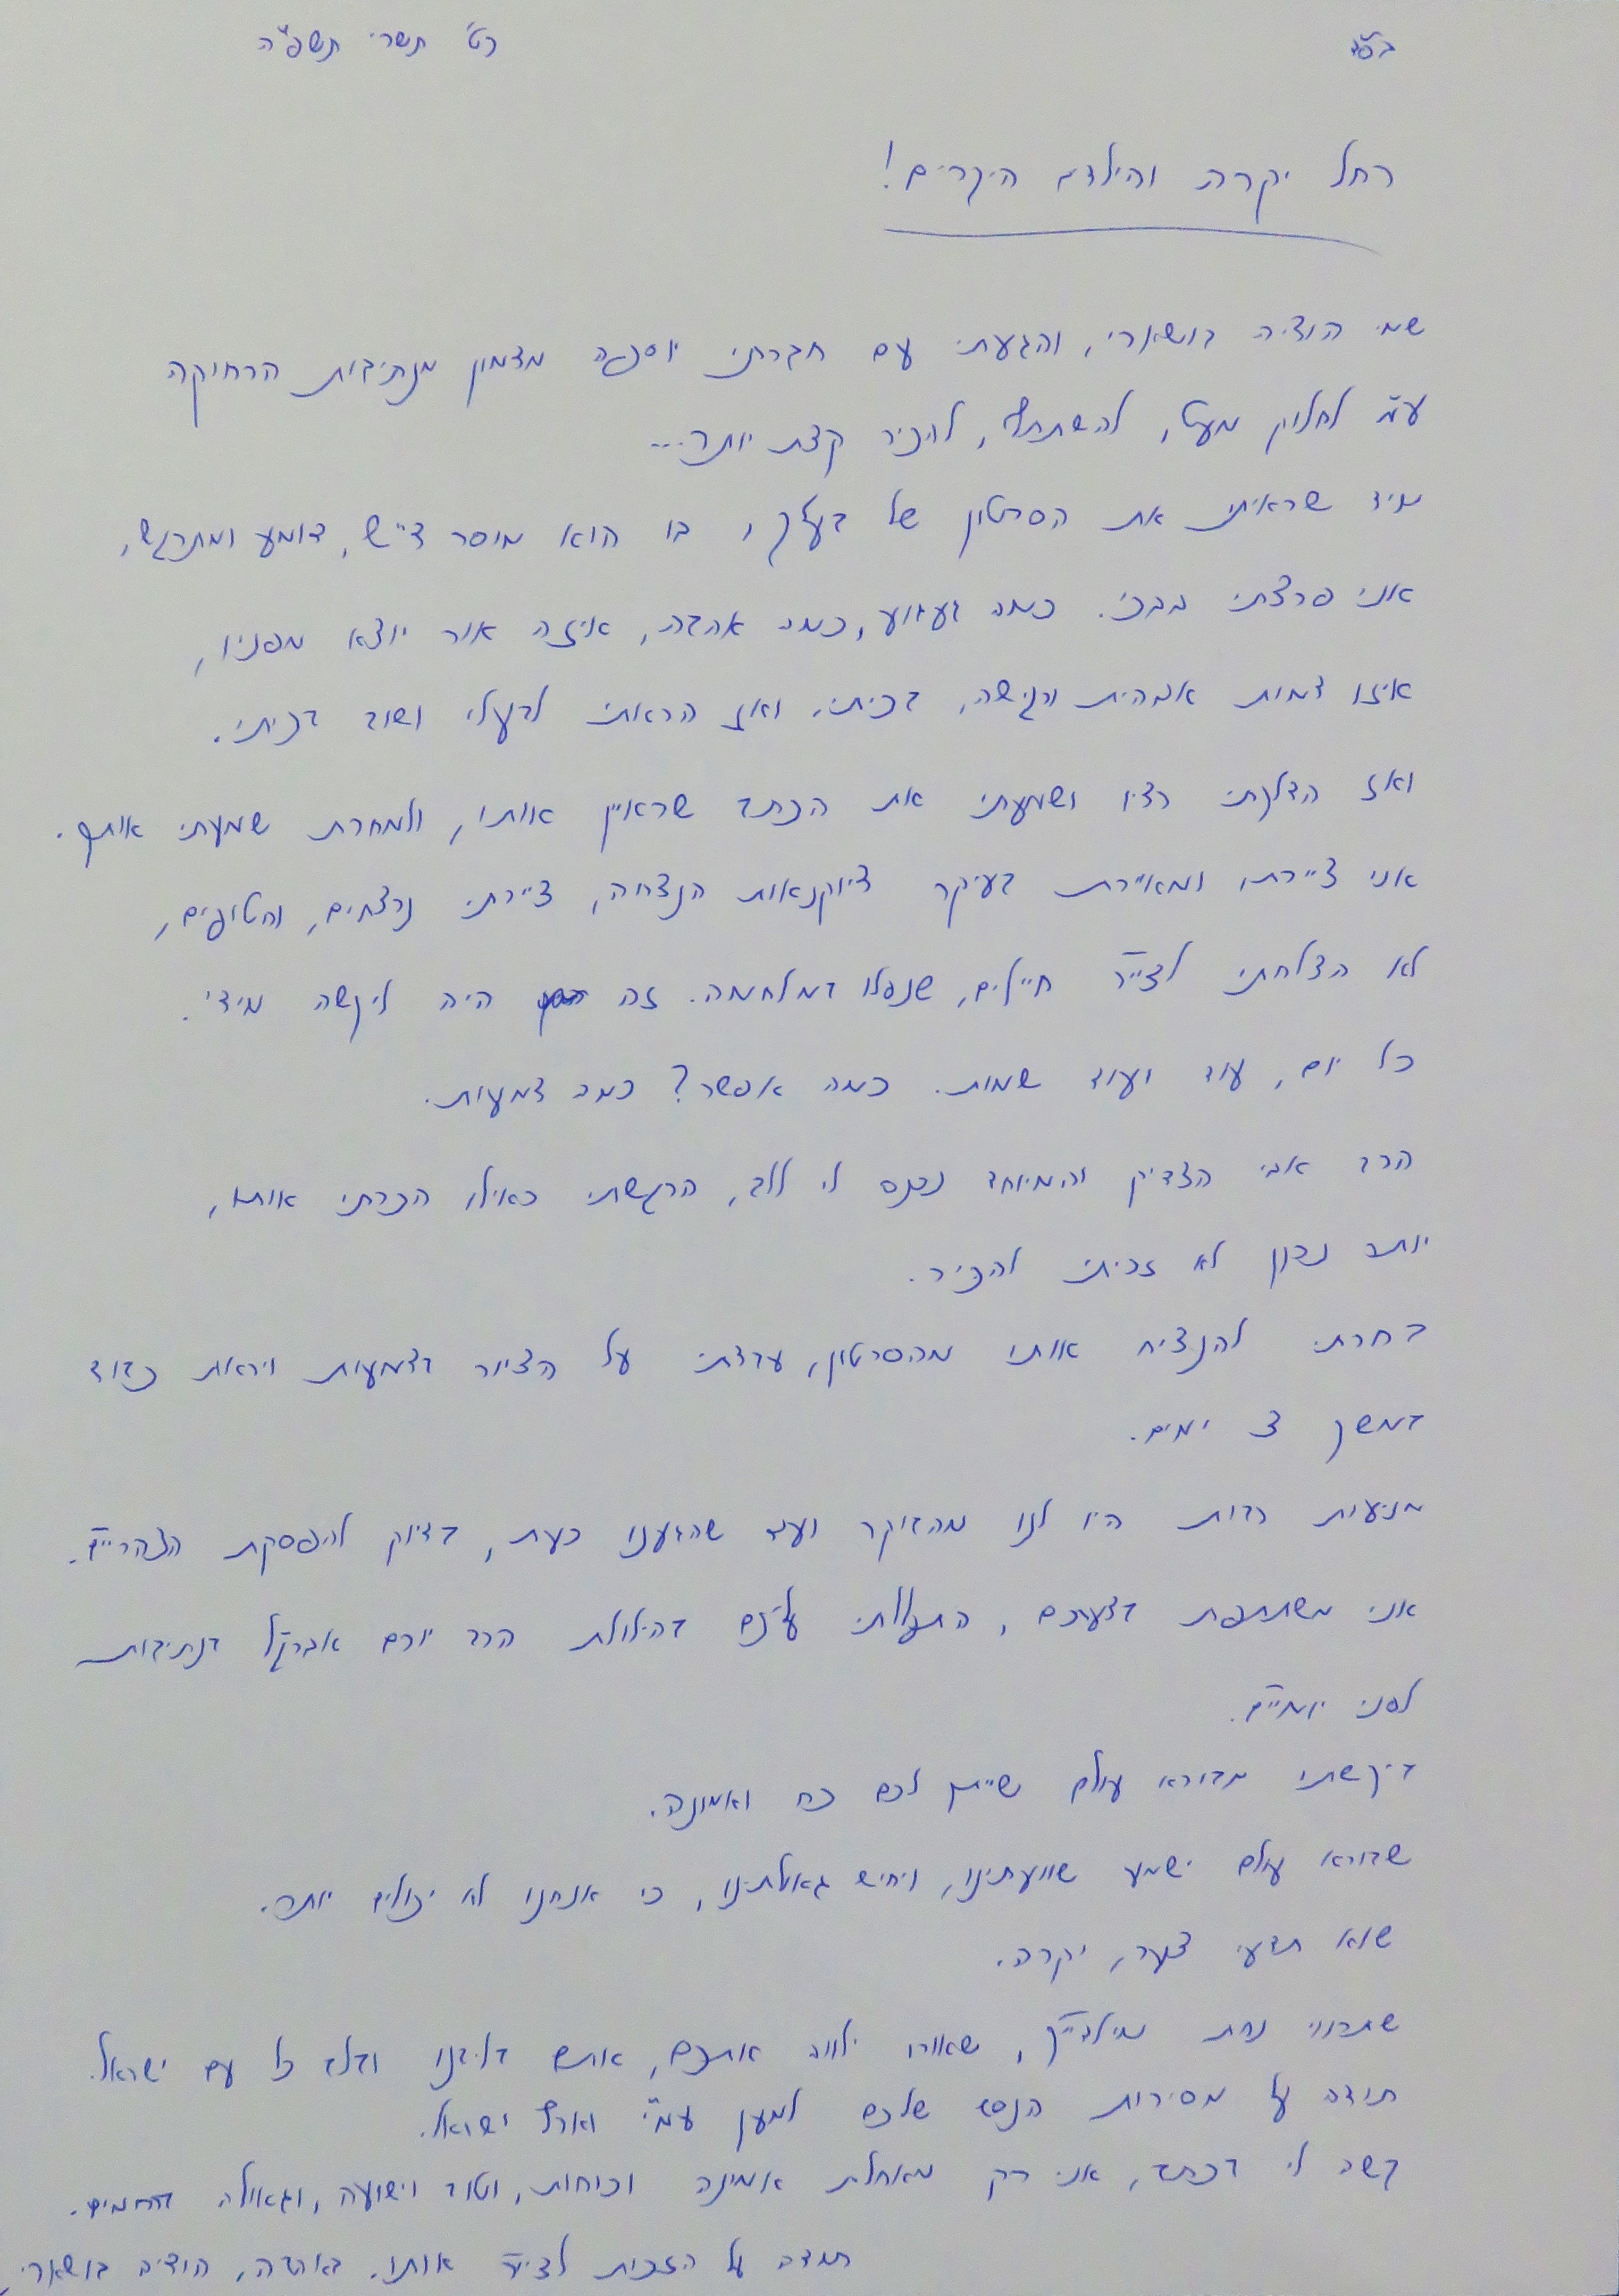 בס"ד
כט' תשרי תשפ"ה
רחל יקרה והילדים היקרים!
שמי הודיה בושארי, והגעתי עם חברתי יוספה מצמון מנתיבות הרחיקה
ע"מ לחלוק מעט, להשתתף, להכיר קצת יותר...
מיד שראיתי את הסרטון של בעלך, בו הוא מוסר ד"ש, דומע ומתרגש,
אני פרצתי בבכי. כמה געגוע, כמה אהבה, איזה אור יוצא מפניו,
איזו דמות אבהית ורגישה, בכיתי. ואז הראתי לבעלי ושוב בכיתי.
ואז הדלקתי רדיו ושמעתי את הכתב שראיין אותו, ולמחרת שמעתי אותך.
אני ציירת, ומאיירת בעיקר דיוקנאות הנצחה, ציירתי נרצחים, וחטופים,
לא הצלחתי לצייר חיילים, שנפלו במלחמה. זה היה לי קשה מידי.
כל יום, עוד ועוד שמות. כמה אפשר? כמה דמעות.
הרב אבי הצדיק והמיוחד נכנס לי ללב, הרגשתי כאילו הכרתי אותו,
יותר נכון לא זכיתי להכיר.
בחרתי להנציח אותו מהסרטון, עבדתי על הציור בדמעות ויראת כבוד
במשך 3 ימים.
מניעות רבות היו לנו מהבוקר ועד שהגענו כעת, בדיוק להפסקת הצהריים.
אני משתתפת בצערכם, התפללתי עליכם בהילולת הרב יורם אברג'ל בנתיבות
לפני יומיים.
ביקשתי מבורא עולם שייתן לכם כח ואמונה.
שבורא עולם ישמע שוועתינו, ויחיש גאולתינו, כי אנחנו לא יכולים יותר.
שלא תדעי צער, יקרה.
שתרווי נחת מילדייך, שאורו ילווה אתכם, אותם בליבנו ובלב כל עם ישראל.
תודה על מסירות הנפש שלכם למען עמ"י וארץ ישראל.
קשה לי לכתוב, אני רק מאחלת אמונה וכוחות, וטוב וישועה, וגאולה ברחמים.
תודה על הזכות לצייר אותו. באהבה, הודיה בושארי.